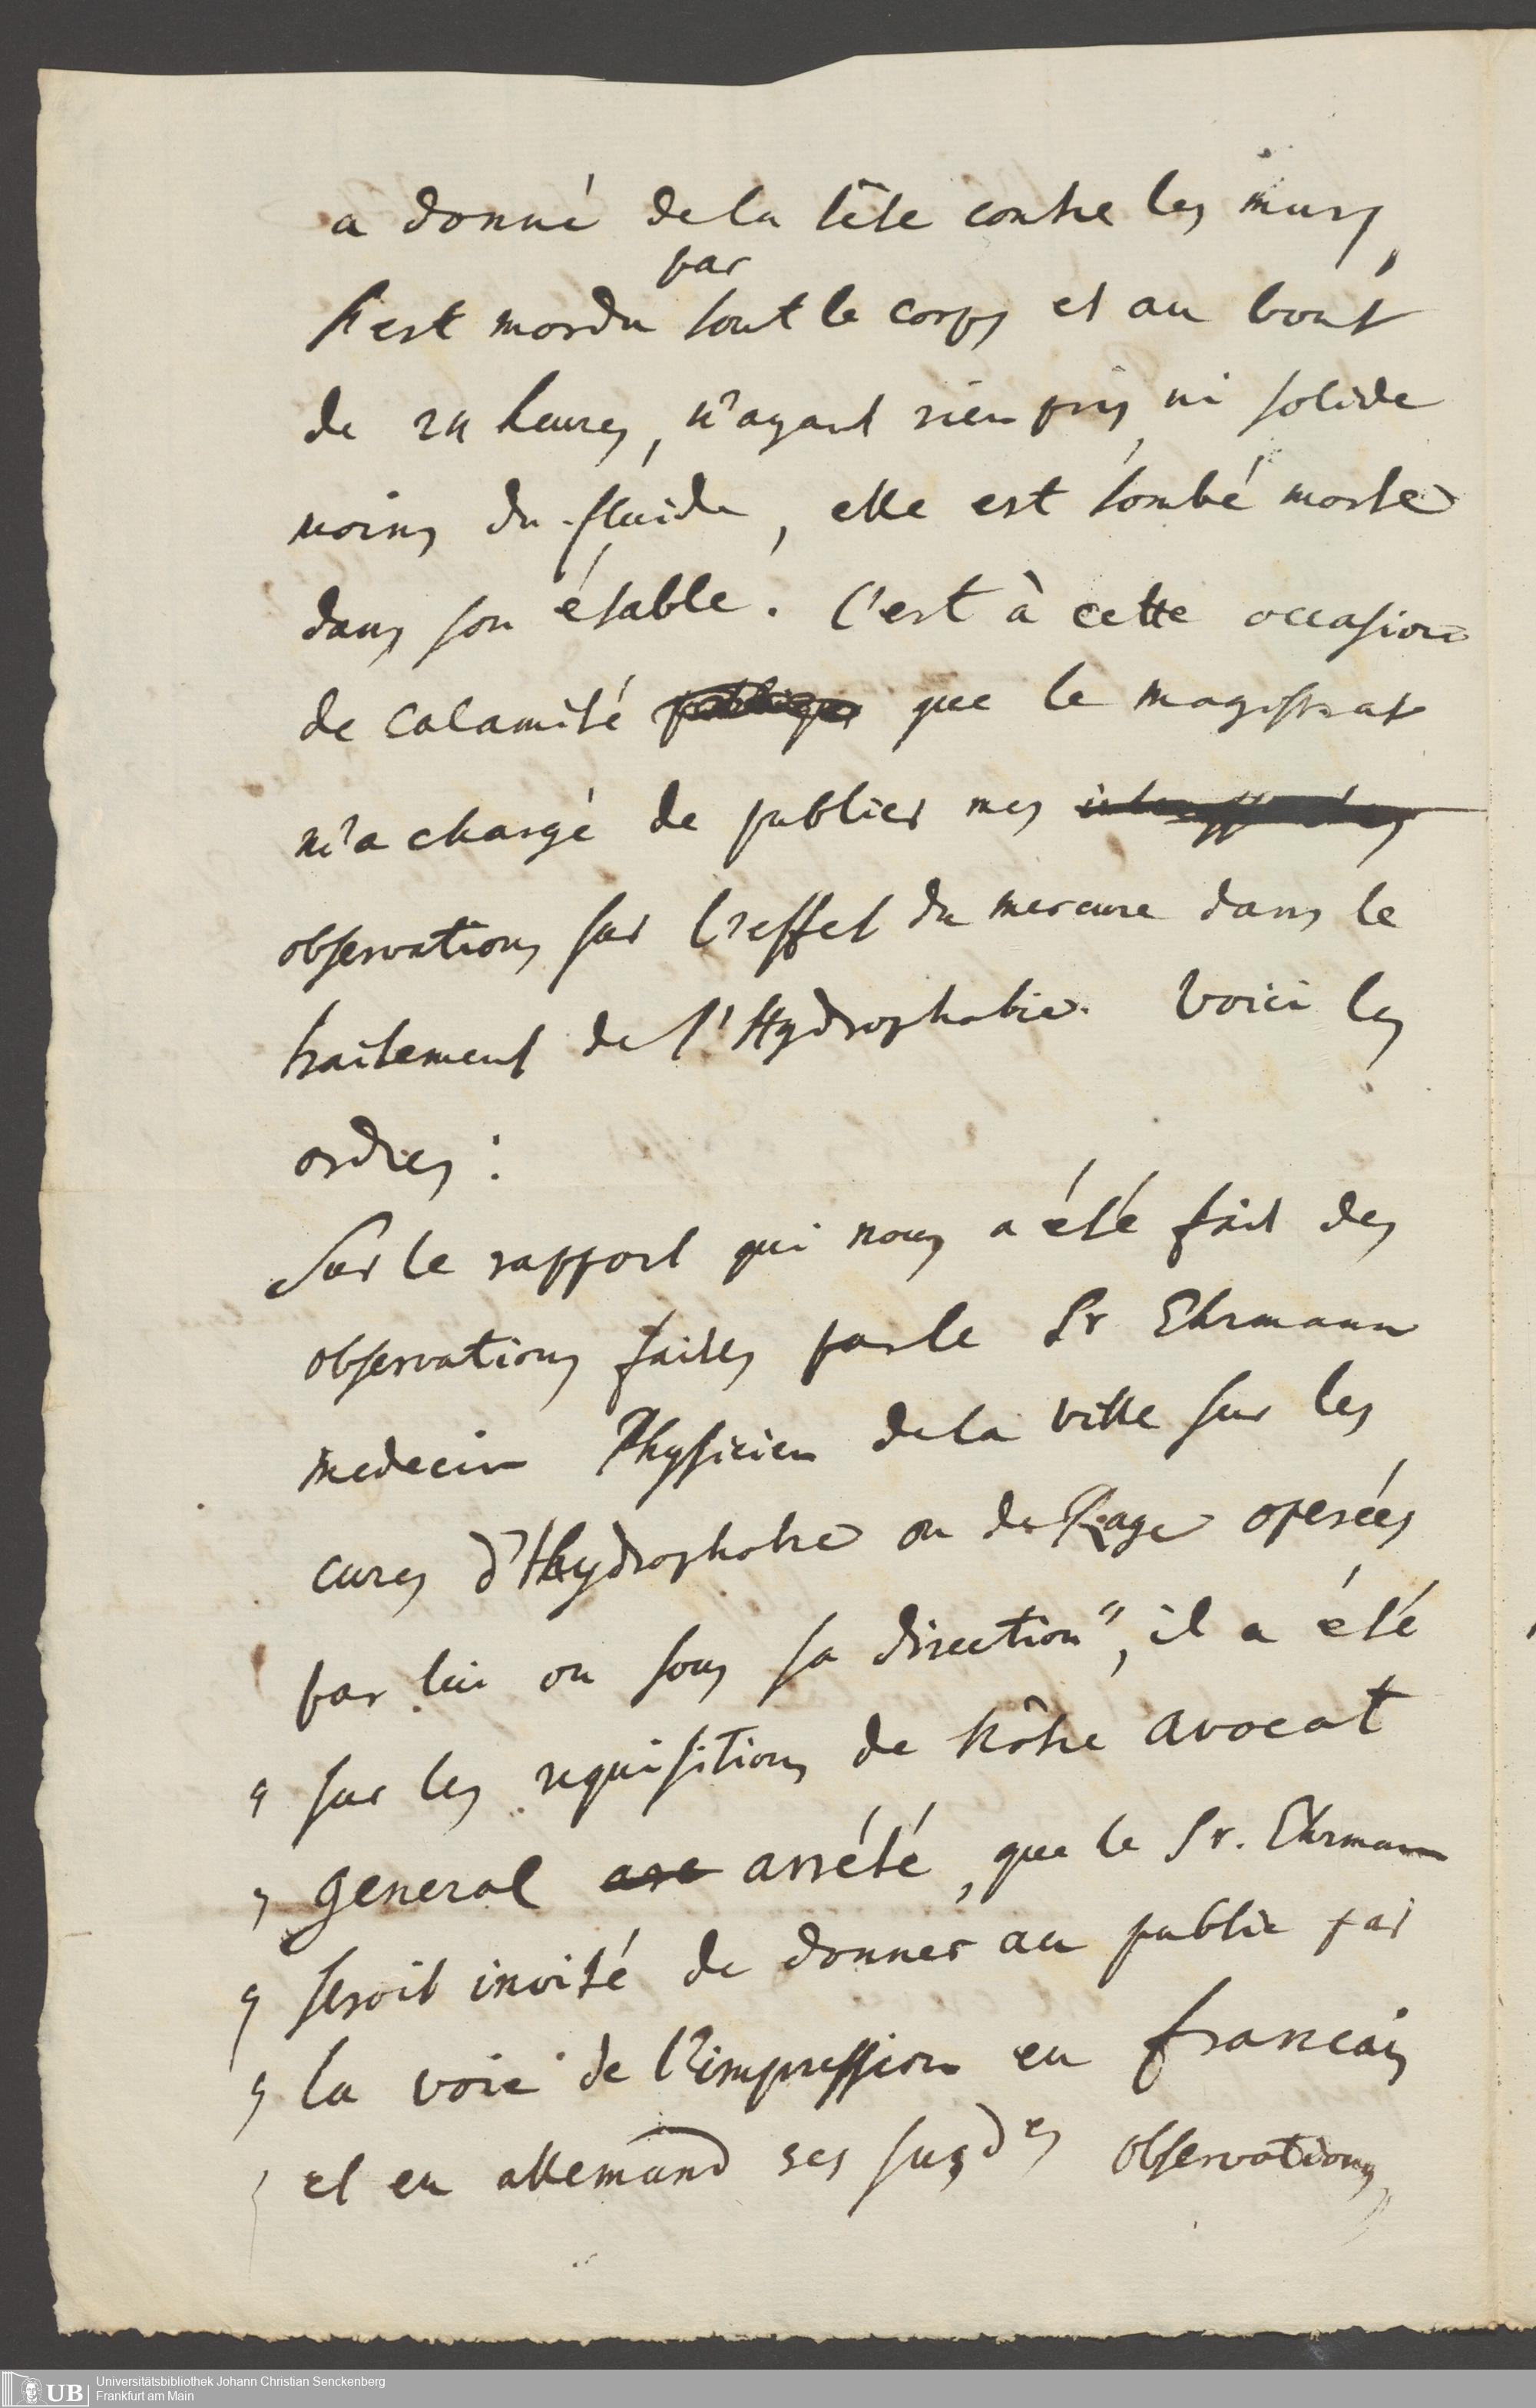 a donné de la tête contre les murs,
s'est mordu par tout le corps et au bout
de 24 heures, n'ayant rien pris, ni solide
moins du fluide, elle est tombé morte
dans son étable. C'est à cette occasion
de calamité publique que le magistrat
m'a chargé de publier mes
observations sur l'effet du mercure dans le
traitement de l'Hydrophobie. Voici les
ordres:
Sur le rapport qui nous a été fait des
observations faites par le Sr Ehrmann
medecin Physicien de la ville sur les
cures d'Hydrophobie ou de Rage operées
par lui ou sous sa direction", il a été
" sur les requisitions de nôtre avocat
" general arrété, que le Sr. Ehrmann
" seroit invité de donner au public par
" la voie de l'impression en francais
" et en allemand ses susdes observations,
Universitätsbibliothek Johann Christian Senckenberg
Frankfurt am Main
UB